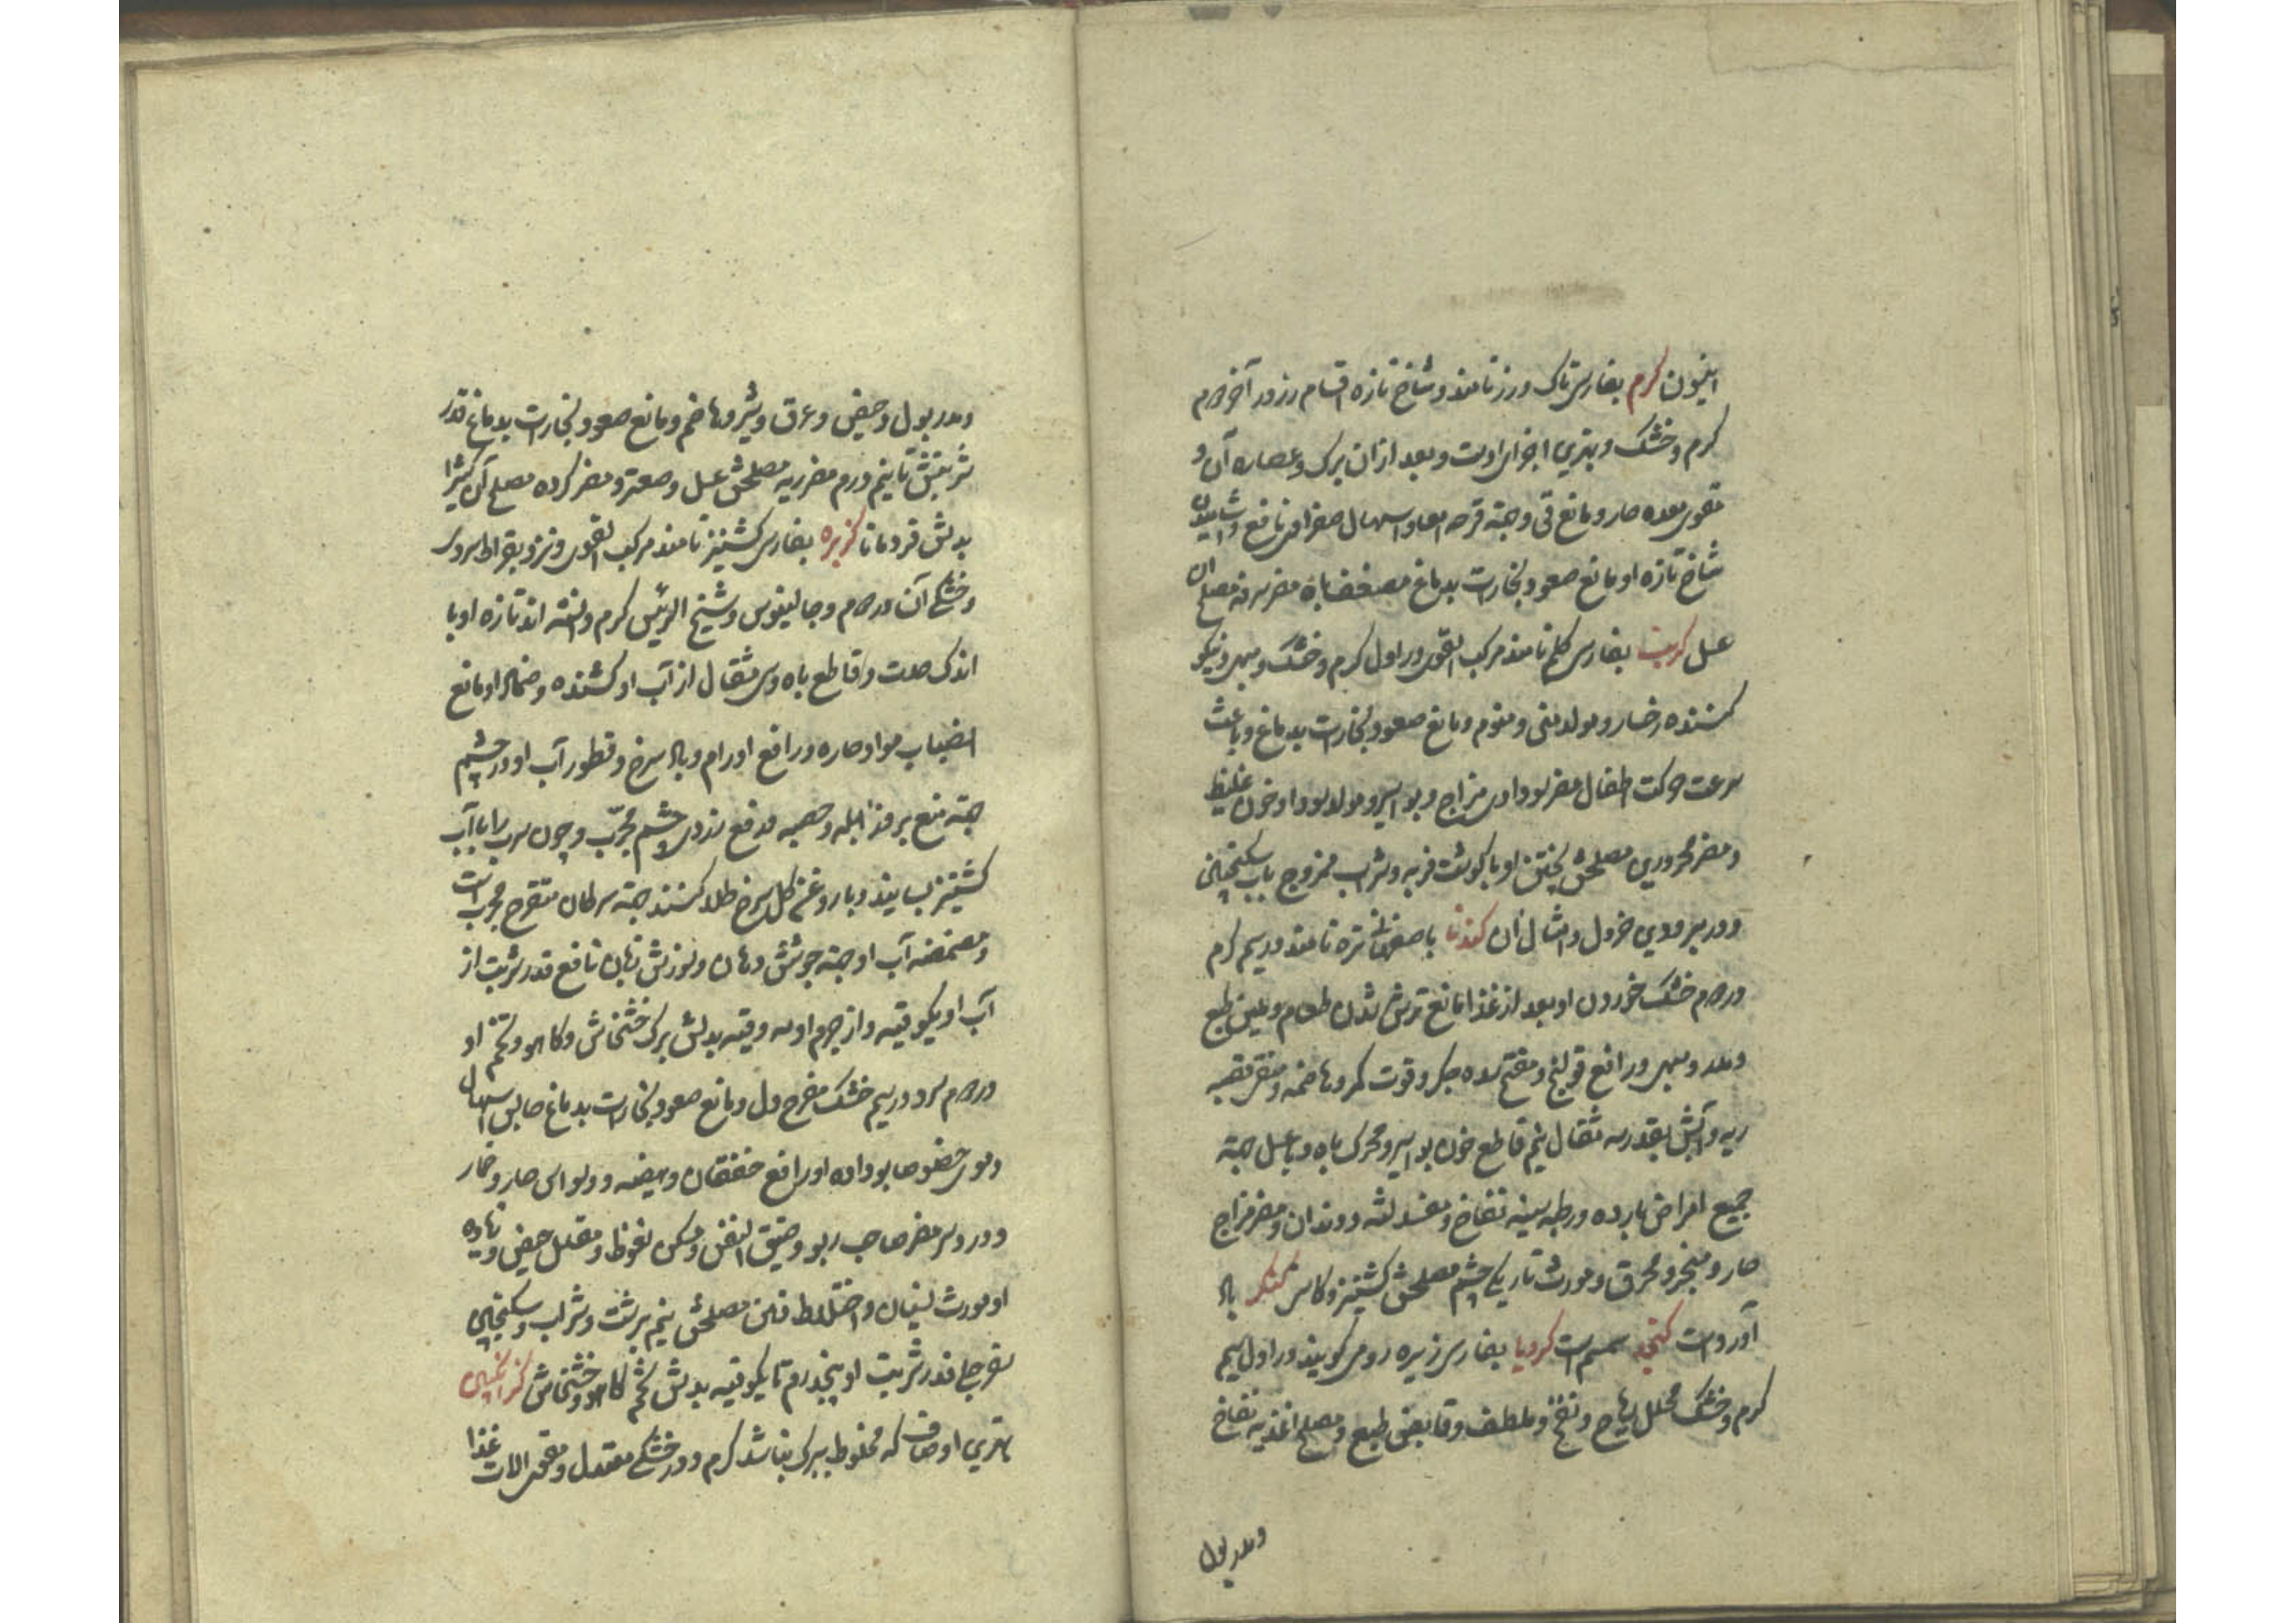 انیسون کرم بفارسی تاک و رز نامند و شاخ تازه اقسام رز در آخر دوم
کرم و خشک و بهترین اجزای اوست و بعد از آن برک و عصاره آن و
مقوی معده حار و مانع قی و جهة قرحه امعا و اسهال صفراوی نافع و آشامیدن
شاخ تازه او مانع صعود بخارات بدماغ مضعف باه مضر سرفه مصلح آن
عسل کرنب بفارسی کلم نامند مرکب القوی در اول کرم و خشک و مسهی و نیکو
کننده رخسار و مولد منی و منوم و مانع صعود بخارات بدماغ و باعث
سرعت حرکت اطفال مضر سوداوی مزاج و بواسیر و مولد سودا و خون غلیظ
و مضر محرورین مصلحش پختن او با کوشت فربه و شراب ممزوج بآب سکنجبین
و در مبرودین خردل و امثال آن کندنا باصفهانی تره نامند در سیم کرم
در دوم خشک خوردن او بعد از غذا مانع ترش شدن طعام و ملین طبع
و مدر و مبهی و رافع قولنج و مفتح سده جکر و قوت کمر و هاضمه و منقی قصبه
ریه و آبش بقدر سه مثقال نیم قاطع خون بواسیر و محرک باه و با عسل جهة
جمیع امراض بارده و رطبه سینه نفاخ و مفسد لثه و دندان و مضر مزاج
حار و مبخر و محرق و مورث تاریکی چشم مصلحش کشنیز و کاسنی کنکر باد
آورد است کنجد سمسم است کرویا بفارسی زیره رومی کویند در اول سیم
کرم و خشک محلل ریاح و نفخ و ملطف و قابض طبع و مصلح اغذیه نفاخ
و مدر بول
و مدر بول و حیض و عرق و شیر و هاضم و مانع صعود بخارات بدماغ قدر
شربتش تا نیم درم مضر ریه مصلحش عسل و صعتر و مضر کرده مصلح آن کتیرا
بدلش قردمانا کزبره بفارسی کشنیز نامند مرکب القوی و نزد بقراط سردی
و خشکی آن در دوم و جالینوس و شیخ الرئیس کرم دانسته اند تازه او با
اندک حدت و قاطع باه و سی مثقال از آب او کشنده و ضماد او مانع
انصباب مواد حاره و رافع اورام و باد سرخ و قطور آب او در چشم
جهة منع بروز آبله و حصبه و دفع زردی چشم مجرب و چون سرب را با آب
کشنیز بسایند و با روغن کل سرخ طلا کنند جهة سرطان متقرح مجرب است
و مضمضه آب او جهة جوشش دهان و سوزش زبان نافع قدر شربت از
آب او یکوقیه و از جرم او سه وقیه بدلش برک خشخاش و کاهو و تخم او
در دوم سرد در سیم خشک مفرح دل و مانع صعود بخارات بدماغ حابس اسهال
دموی خصوصا بو داده او رافع خفقان و هیضه و وسواس حار و خمار
و درد سر مضر صاحب ربو و ضیق النفس و مسکن نعوظ و مقلل حیض و زیاده
او مورث نسیان و اختلاط ذهن مصلحش نیم برشت و شراب و سکنجبین
سفرجلی قدر شربت او پنجدرم تا یکوقیه بدلش تخم کاهو و خشخاش کزانکبین
بهترین اوصاف که مخلوط ببرک نباشد کرم و در خشکی معتدل و مقوی آلات غذا